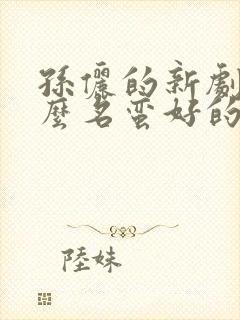 孫儷的新劇
麼名蛮好的
陸妹